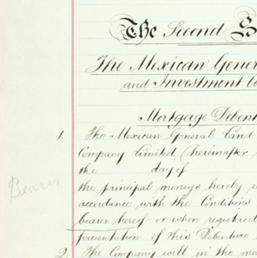 The Second S
The Mexican Gener
and Investment Co
Mortgage Debent
1. The Mexican General Land
Company Limited (hereinafter
the day of
the principal moneys hereby s
accordance with the Conditions
bearer hereof or when registered
presentation of this Debenture
2. The Company will in the mea